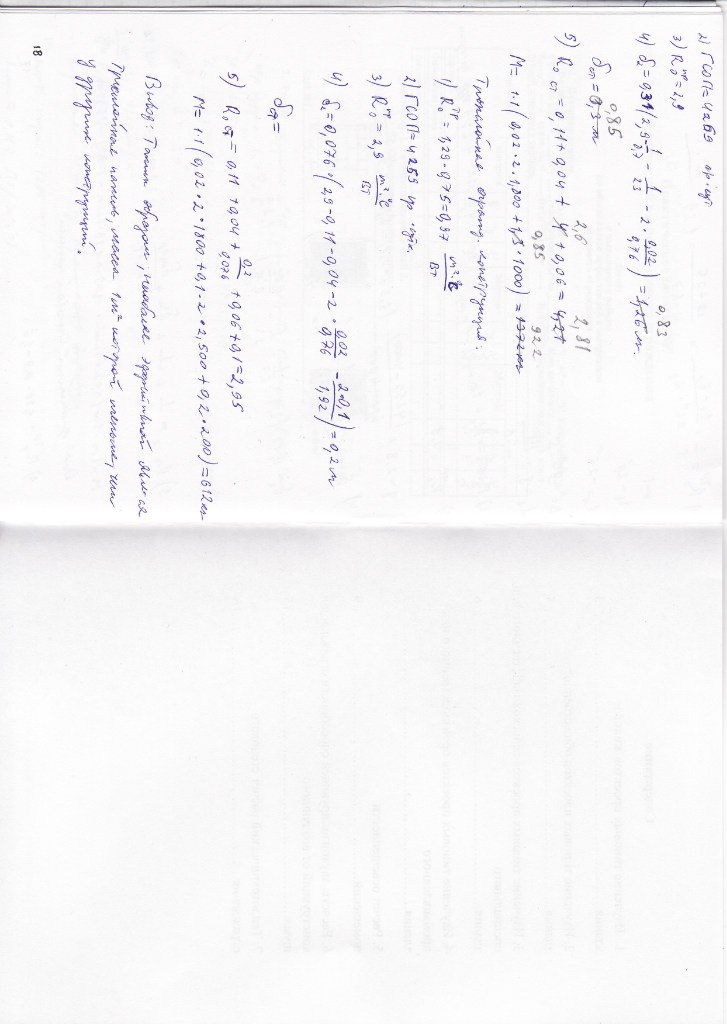 2) ГСОП=4259 гр·сут
3) R₀ᵗᵖ=2,9
4) δ=0,31(2,9-1/8,7-1/23-2·0,02/0,76)=1,26 м. 0,83
δст=1,3 м 0,85
5) R₀ ст=0,11+0,04+4+0,06=4,21 2,6 2,81
М=1·1(0,02·2·1,800+1,3·1000)=1372 кг 0,85 922
Трехслойная огражд. конструкция:
1) R₀ᵀᴾ=1,29·0,75=0,97 m²·°C/Вт
2) ГСОП=4259 гр·сутк.
3) R₀ᵐᵖ=2,9 m²·°C/Вт
4) δ=0,076·(2,9-0,11-0,04-2·0,02/0,76-2·0,1/1,92)=0,2 м
δст=
5) R₀ ст=0,11+0,04+0,2/0,076+0,06+0,1=2,95
М=1·1(0,02·2·1800+0,1·2·2,500+0,2·200)=612 кг
Вывод: Таким образом, наиболее эффективной является
трехслойная панель, масса 1м² которой меньше, чем
у других конструкций.
18